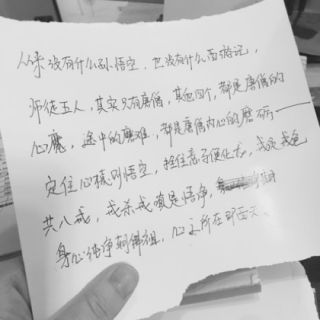 从来没有什么孙悟空，也没有什么西游记，
师徒五人，其实只有唐僧，其他四个，都是唐僧的
心魔，途中的磨难，都是唐僧内心的磨砺——
定住心猿则悟空，拴住意马便化龙，我贪我色
共八戒，我杀我嗔是悟净，
身心纯净朝佛祖，心之所在即西天。